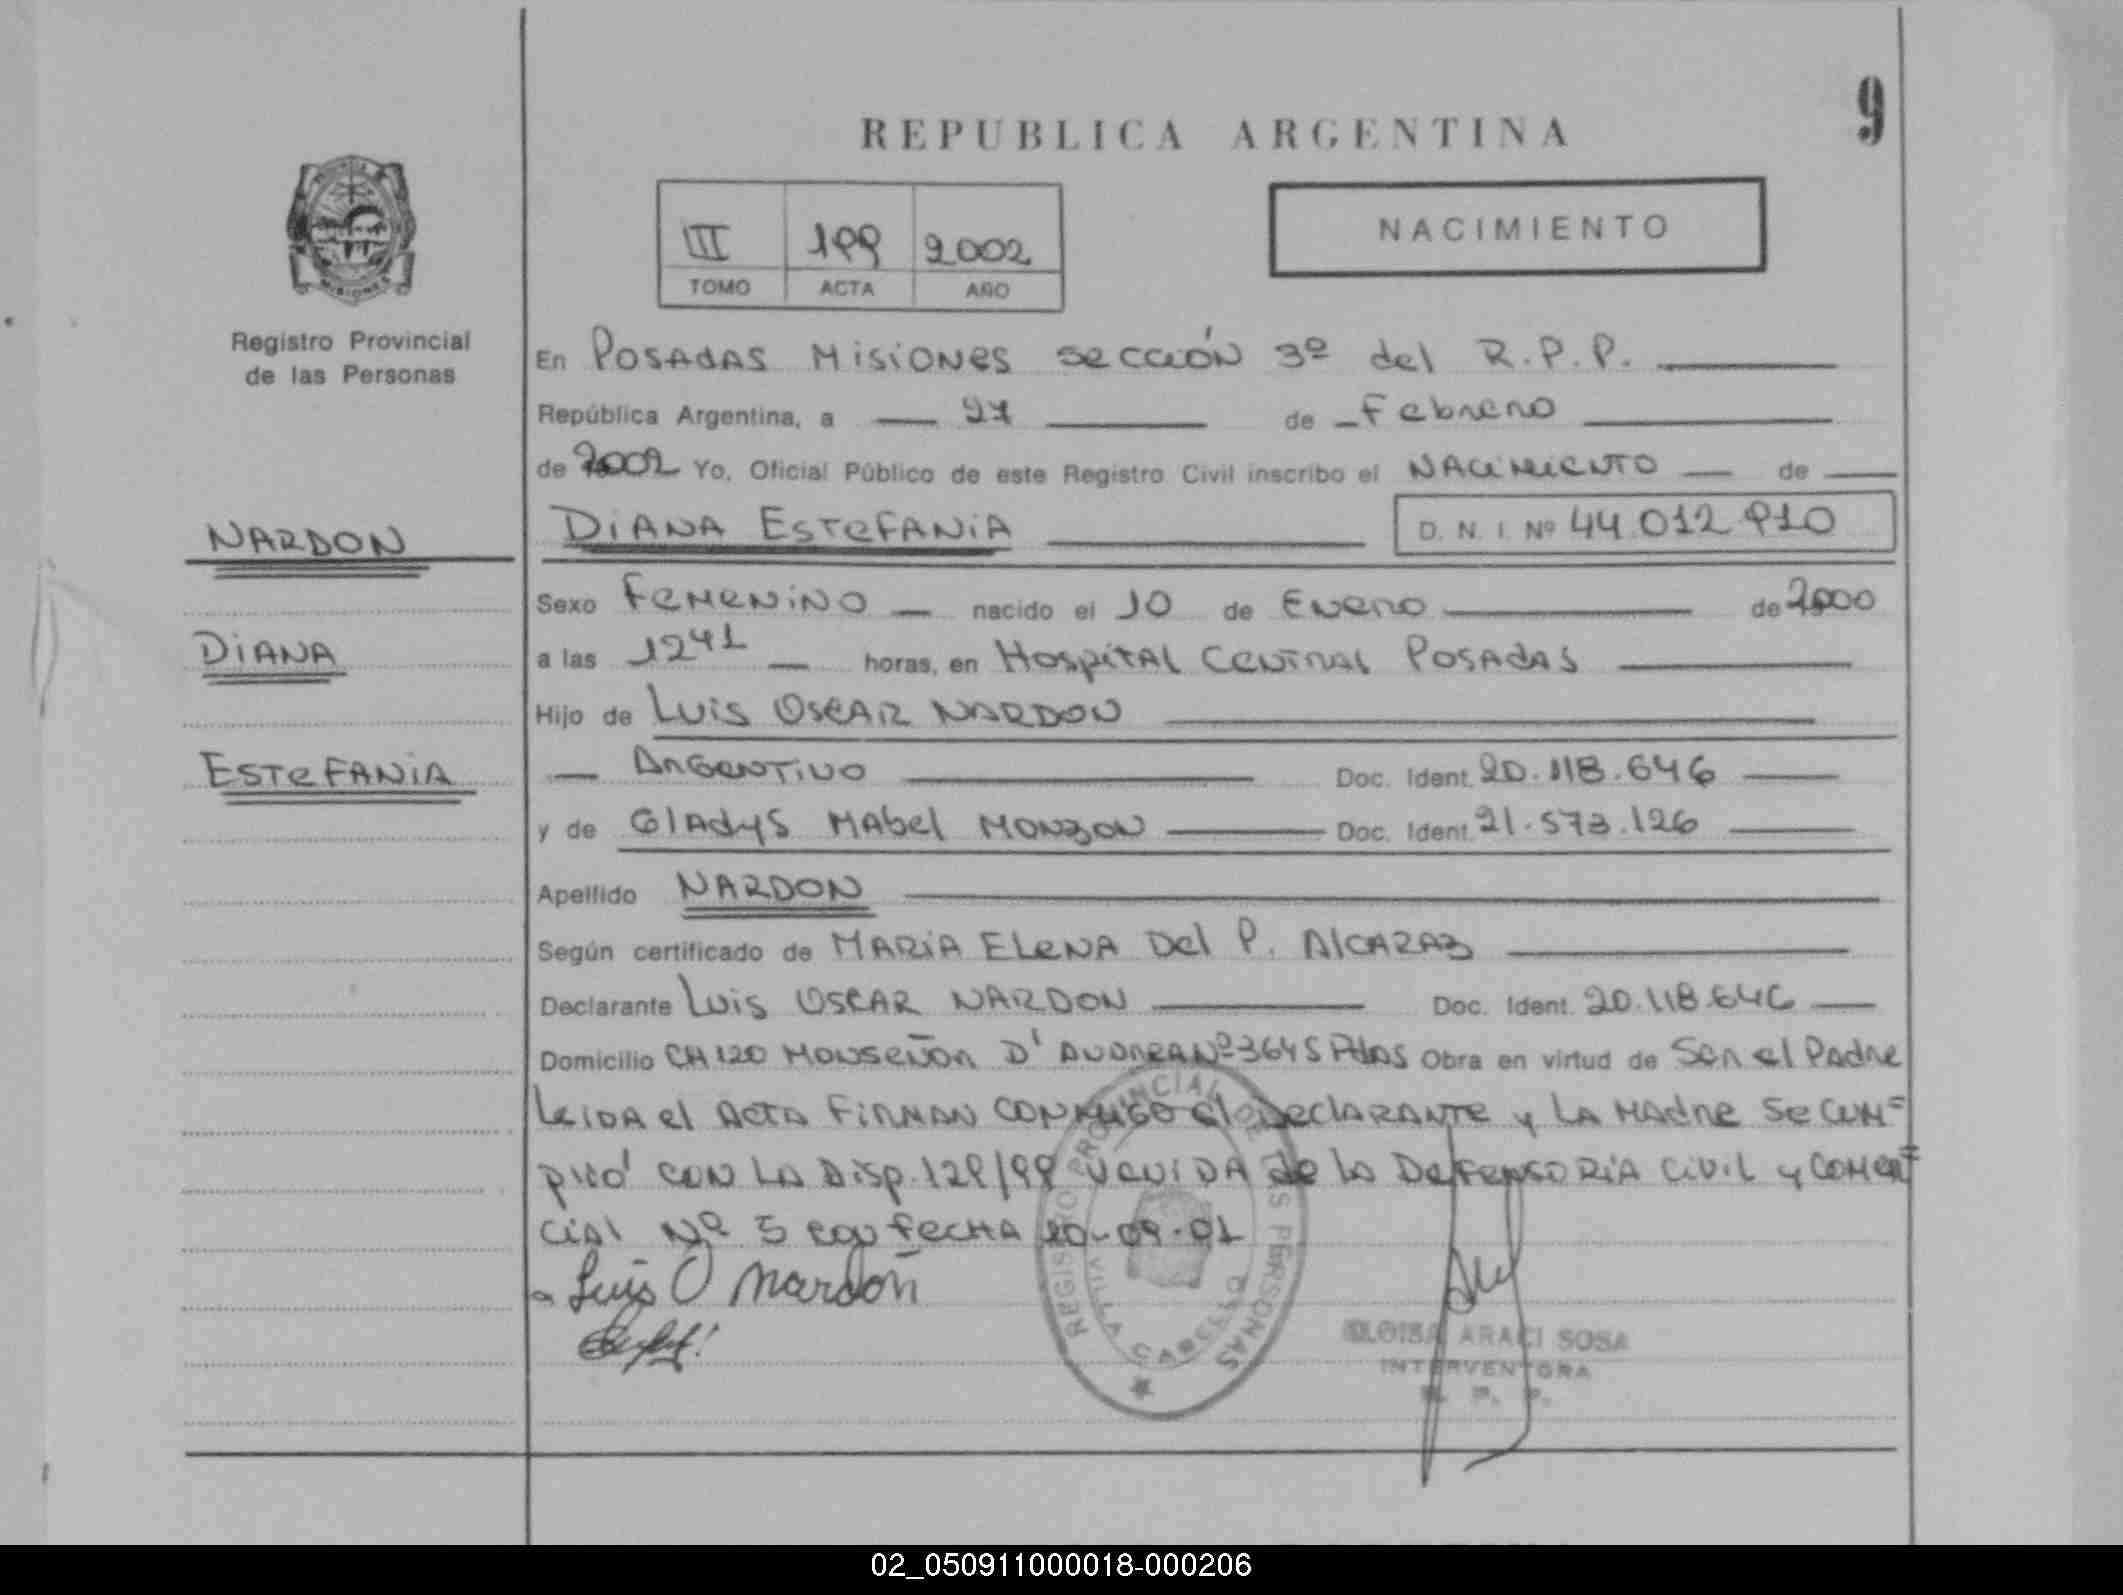 9
REPUBLICA ARGENTINA
III 199 2002
TOMO ACTA AÑO
NACIMIENTO
PROVINCIA DE MISIONES
Registro Provincial
de las Personas
En POSADAS MISIONES sección 3º del R.P.P.
República Argentina, a 27 de Febrero
de 2002 Yo, Oficial Público de este Registro Civil inscribo el NACIMIENTO de
NARDON DIANA ESTEFANIA D. N. I. Nº 44.012.910
Sexo FEMENINO nacido el 10 de ENERO de 2000
DIANA
a las 1241 horas, en HOSPITAL CENTRAL POSADAS
Hijo de LUIS OSCAR NARDON
ESTEFANIA
ARGENTINO Doc. Ident. 20.118.646
y de GLADYS MABEL MONZON Doc. Ident. 21.573.126
Apellido NARDON
Según certificado de MARIA ELENA Del P. ALCARAZ
Declarante LUIS OSCAR NARDON Doc. Ident. 20.118.646
Domicilio CH 120 MONSEÑOR D' ANDREA Nº 3645 Pdas Obra en virtud de Ser el Padre
LEIDA el ACTA FIRMAN CONMIGO el DECLARANTE y LA MADRE SE CUM=
PLIO CON LA Disp. 129/99 VENIDA de la DEFENSORIA CIVIL y COMER=
CIAL Nº 5 CON FECHA 20-09-01
Luis O Nardon
REGISTRO PROVINCIAL DE LAS PERSONAS
VILLA CABELLO
ELOISA ARACI SOSA
INTERVENTORA
R. P. P.
02_050911000018-000206